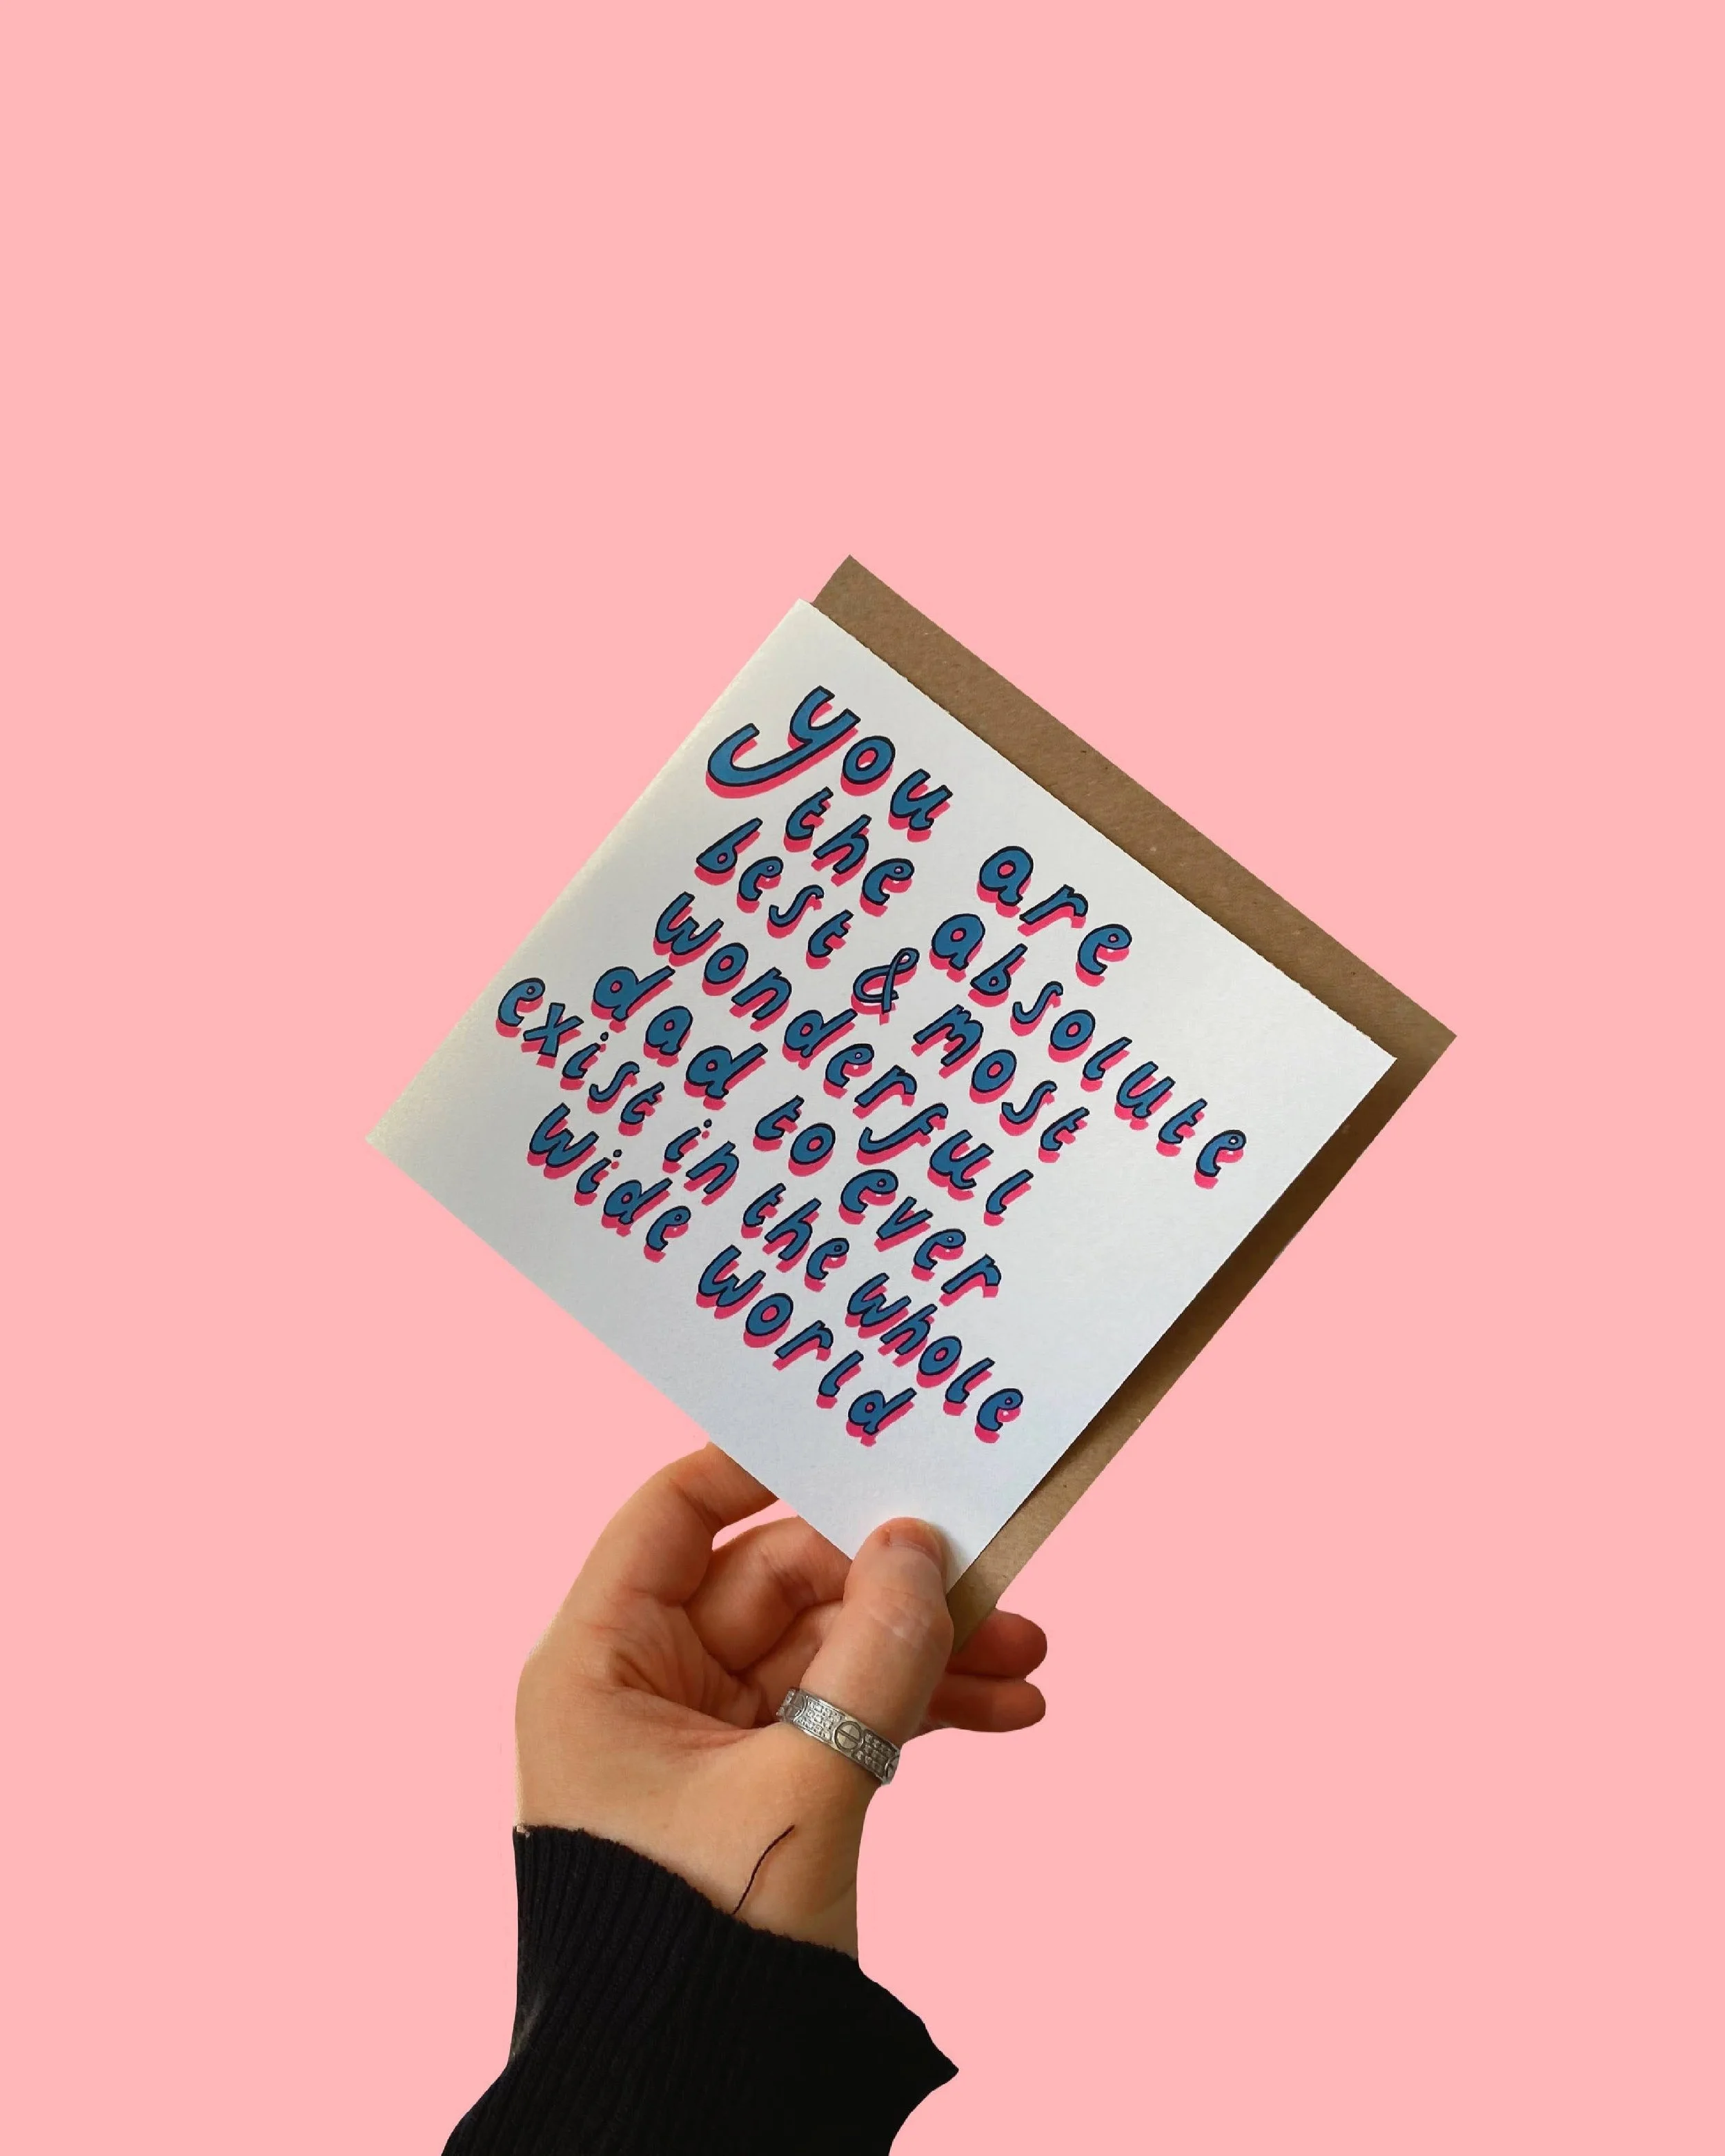 you are
the absolute
best & most
wonderful
dad to ever
exist in the whole
wide world